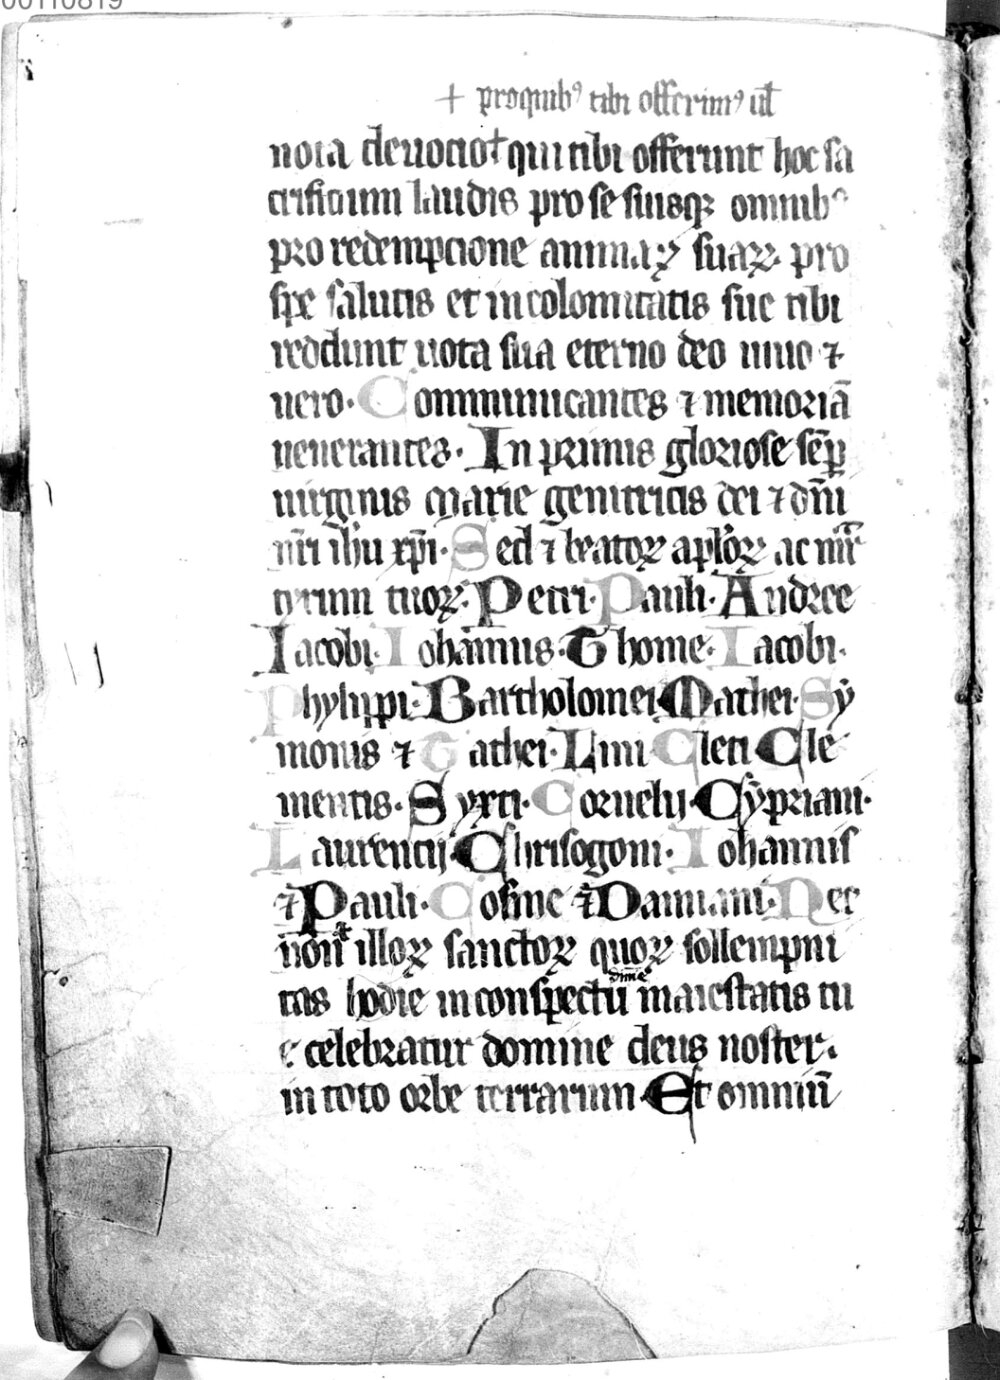 00110819
+ proquibꝰ tibi offerimꝰ ul̵
nota deuocio† qui tibi offerunt hoc sa
crificium laudis pro se suisqꝫ omnibꝰ
pro redempcione animaꝝ suaꝝ pro
spe salutis et incolomitatis sue tibi
reddunt uota sua eterno deo uiuo ⁊
uero· Communicantes ⁊ memoriā
venerantes· In primis gloriose sēꝑ
uirginis marie genitricis dei ⁊ dn̄i
nr̄i ih̄u xp̄i· Sed ⁊̄ beatoꝝ apl̄oꝝ ac mr̄
tyrum tuoꝝ· Petri· Pauli· Andree
Iacobi· Iohannis· Thome· Iacobi·
Phylippi· Bartholomei· Mathei· Sy
monis ⁊ Tathei· Lini Cleti Cle
mentis· Syxti· Cornelij· Cypriani·
Laurentij· Chrisogoni· Iohannis
⁊̄ Pauli· Cosme ⁊̄ Damiani· Nec
non ⁊̄ illoꝝ sanctoꝝ quoꝝ sollempni
tas hodie in conspectu diīne maiestatis tu
e celebratur domine deus noster·
in toto orbe terrarum· Et omniū